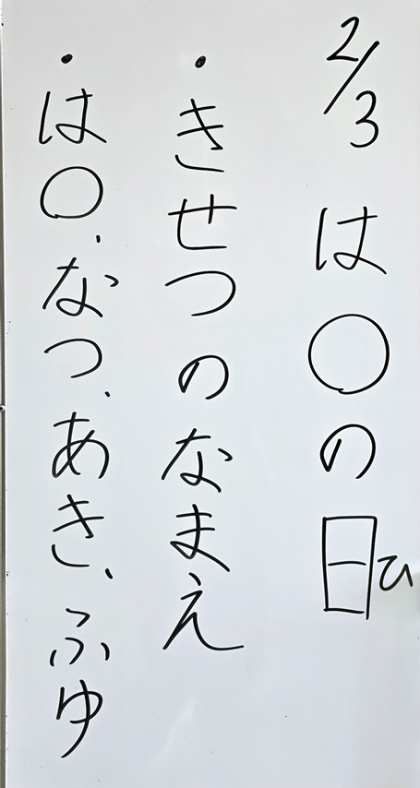 2/3 は〇の日ひ
・きせつのなまえ
・は〇、なつ、あき、ふゆ